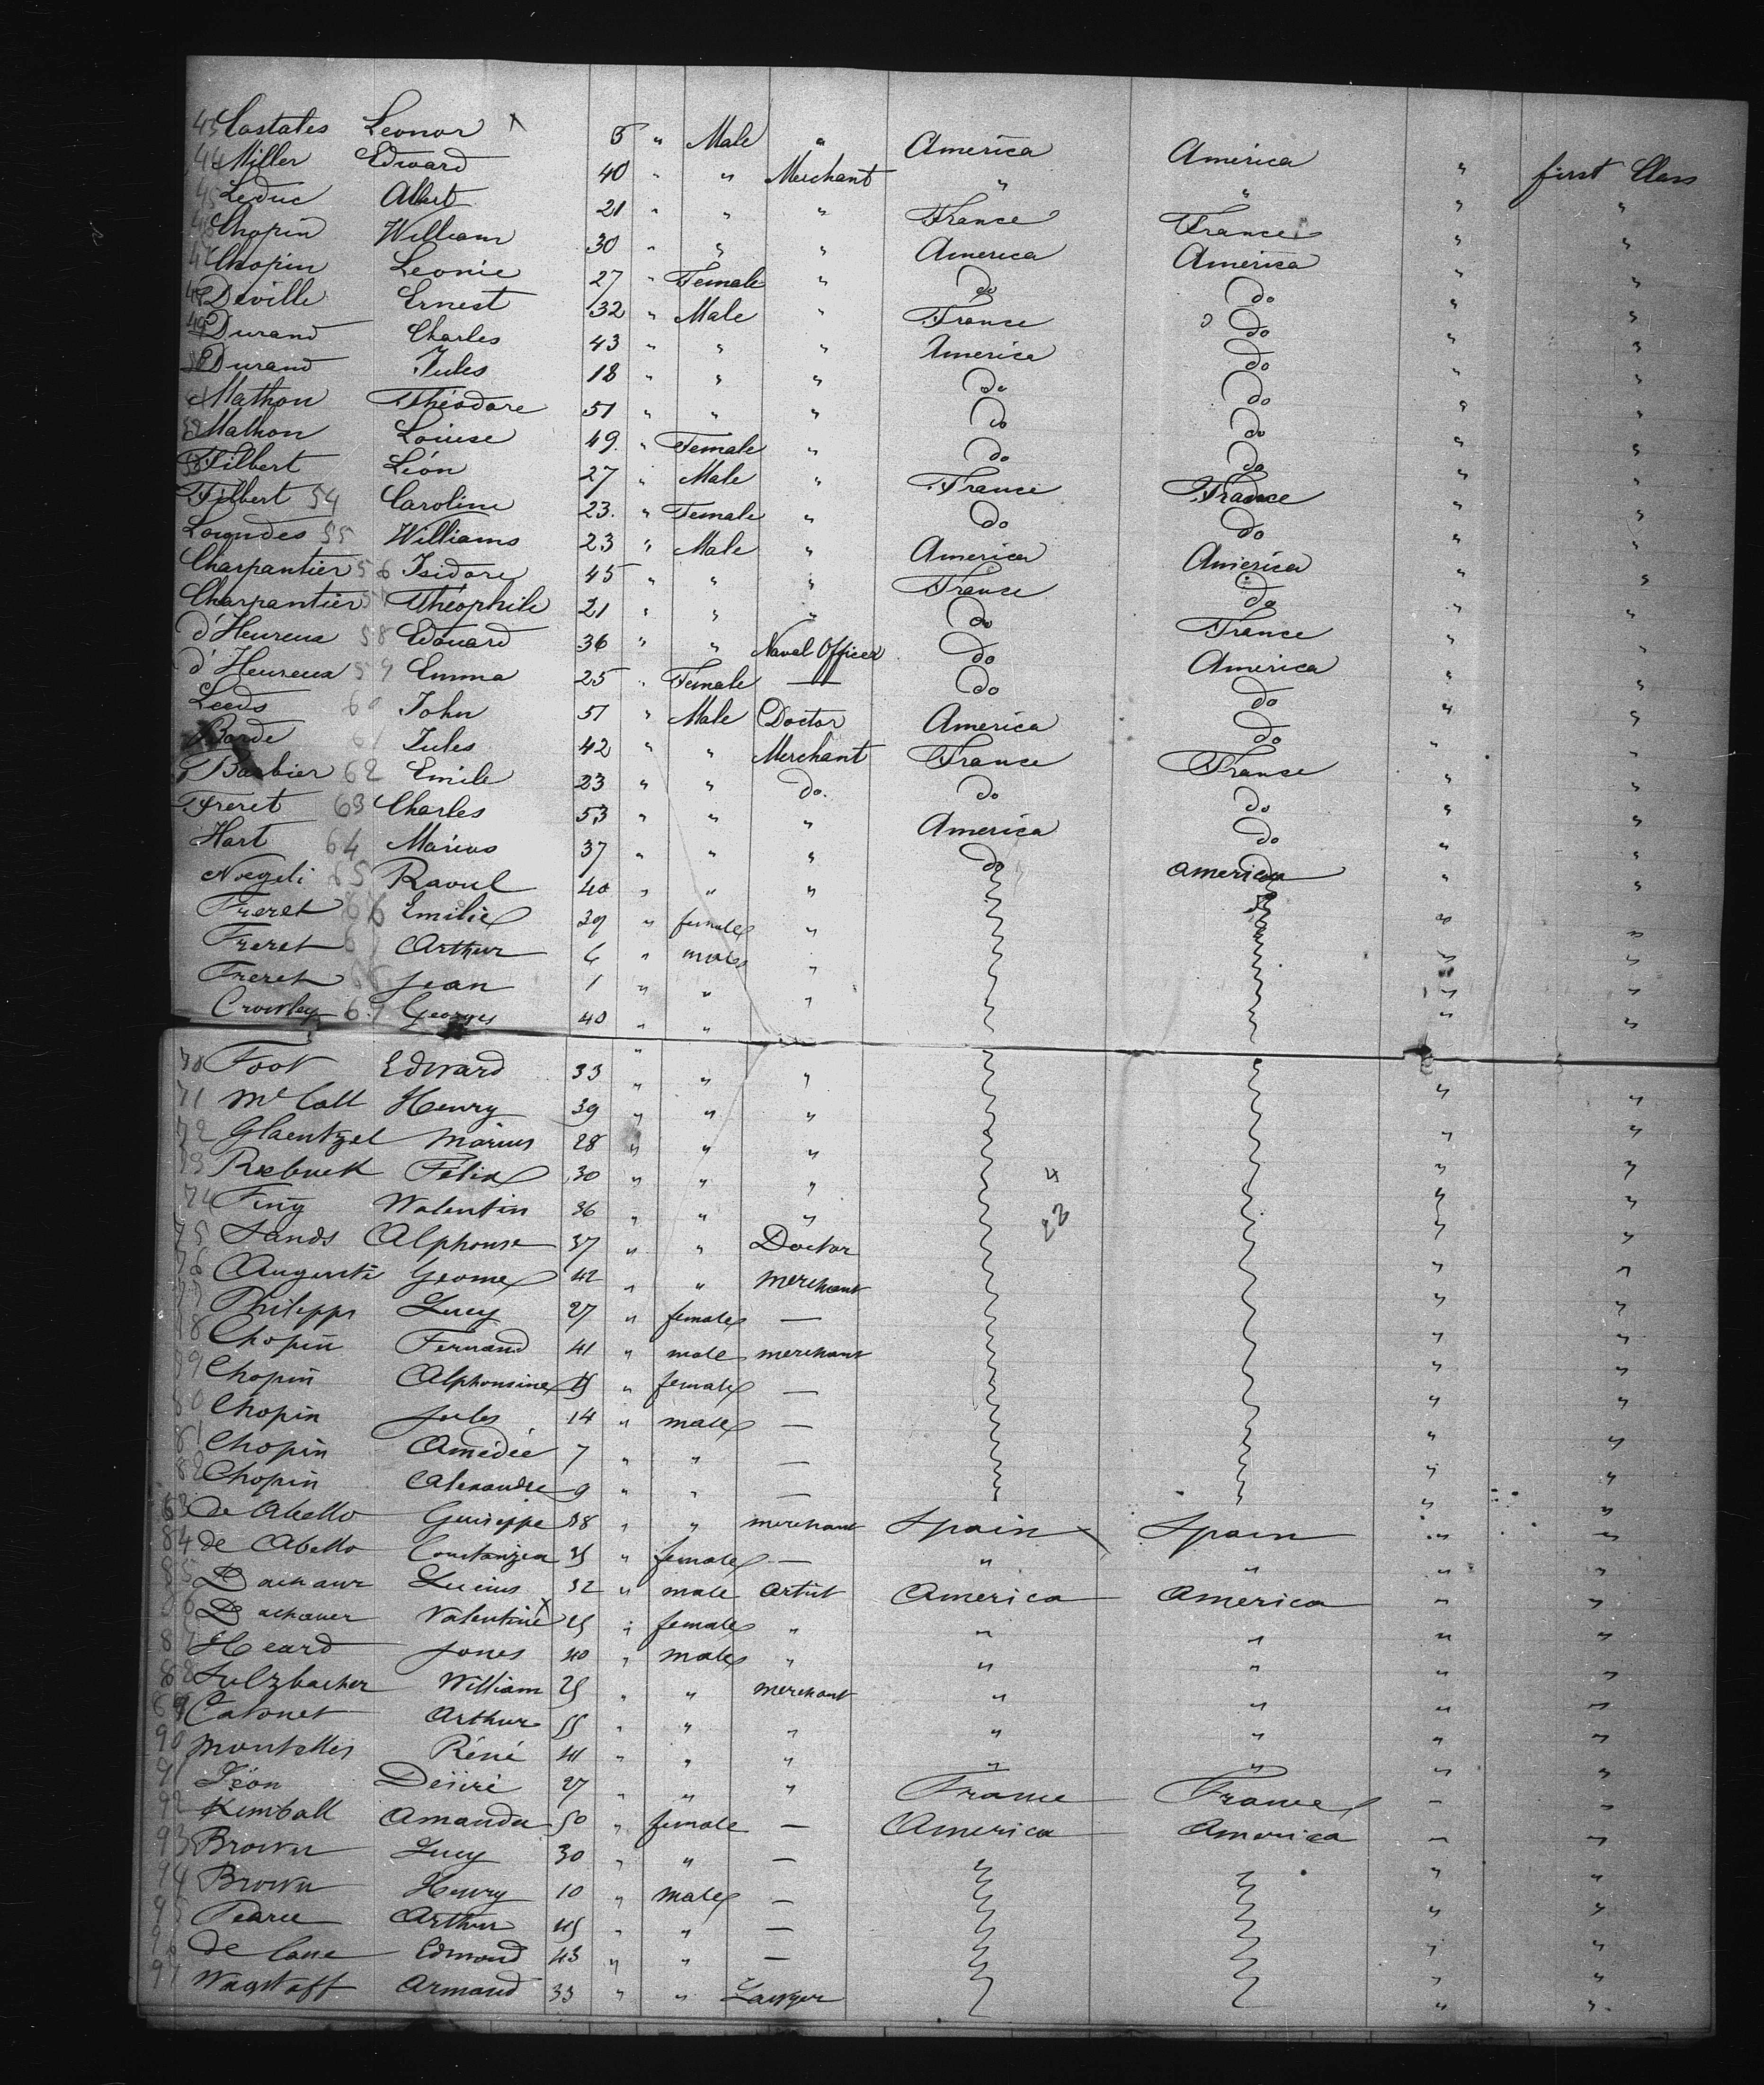 43 Costales Leonor 5 " Male " America America " first Class
44 Miller Edward 40 " " Merchant " " " "
45 Leduc Albert 21 " " " France France " "
46 Chopin William 30 " " " America America " "
47 Chopin Leonie 27 " Female " do do " "
48 Deville Ernest 32 " Male " France do " "
49 Durand Charles 43 " " " America do " "
50 Durand Jules 18 " " " do do " "
51 Mathon Théodore 51 " " " do do " "
52 Mathon Louise 49 " Female " do do " "
53 Filbert Léon 27 " Male " France France " "
Filbert 54 Caroline 23. " Female " do do " "
55 Williams 23 " Male " America America " "
Charpantier 56 Isidore 45 " " " France do " "
Charpantier 57 Théophile 21 " " " do France " "
d'Heureux 58 Edouard 36 " " Naval Officer do America " "
d'Heureux 59 Emma 25 " Female — do do " "
Leeds 60 John 51 " Male Doctor America do " "
Borde 61 Jules 42 " " Merchant France France " "
Barbier 62 Emile 23 " " do. do do " "
Freret 63 Charles 53 " " " America do " "
Hart 64 Marius 37 " " " do America " "
Noegeli 65 Raoul 40 " " "
Freret 66 Emilie 39 " female "
Freret 67 Arthur 6 " male "
Freret 68 Jean 1 " " "
Crowley 69 Georges 40 " "
70 Foot Edward 33 " " "
71 Mc Call Henry 39 " " "
72 Glaentzel Marius 28 " " "
73 Roebuck Félix 30 " " "
74 Valentin 36 " " "
75 Sands Alphonse 37 " " Doctor
76 Auguste Gerome 42 " " merchant
77 Philipps Lucy 27 " female —
78 Chopin Fernand 41 " male merchant
79 Chopin Alphonsine " female —
80 Chopin Jules 14 " male —
81 Chopin Amédée 7 " " —
82 Chopin Alexandre 9 " " —
83 de Abello Guiseppe 38 " " merchant Spain Spain " "
84 de Abello Constanzia 35 " female — " " " "
85 Lucius 32 " male Artist America America " "
86 Valentine 25 " female " " " " "
87 Heard Jones 40 " male " " " " "
88 Sulzbacher William 25 " " merchant " " " "
89 Catonet Arthur 55 " " " " " " "
90 Réné 41 " " " " " " "
91 Léon Désiré 27 " " " France France " "
92 Kimball Amanda 50 " female — America America " "
93 Brown Lucy 30 " " — " "
94 Brown Henry 10 " male — " "
95 Pearce Arthur 45 " " — " "
96 de Cone Edmond 43 " " — " "
97 Wagstaff Armand 33 " " Lawyer " "